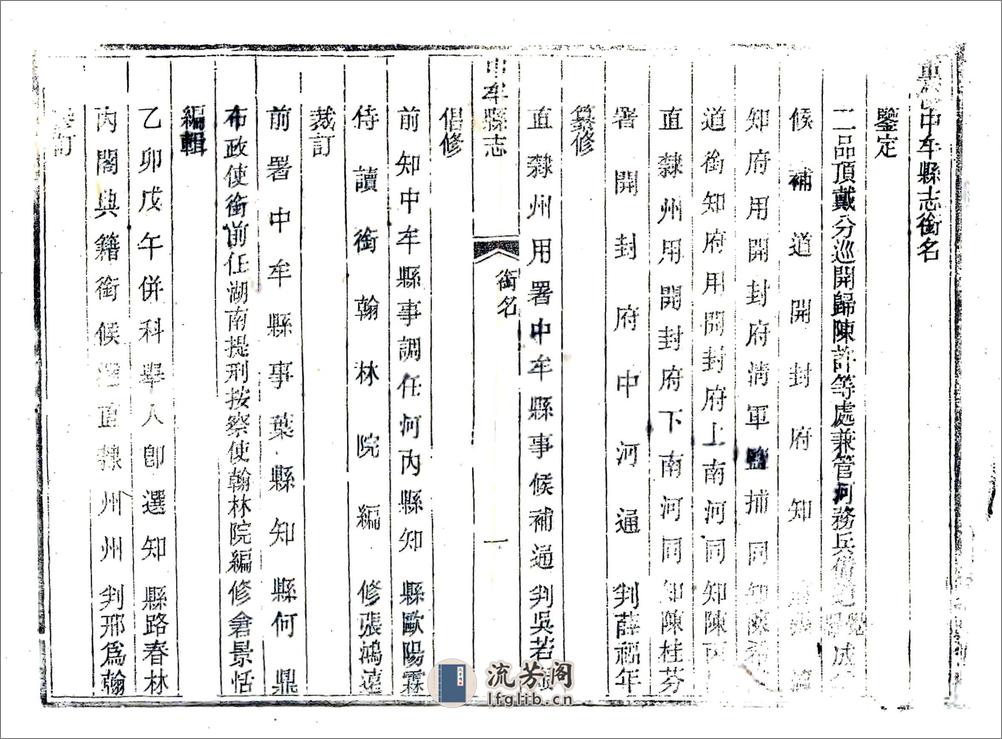 中牟縣志銜名
鑒定
二品頂戴分巡開歸陳許等處兼管河務兵備道
候補道開封府知
知府用開封府清軍鹽捕同知
道銜知府用開封府上南河同知陳
直隸州用開封府下南河同知陳桂芬
署開封府中河通判薛福年
纂修
直隸州用署中牟縣事候補通判吳若
中牟縣志
銜名
一
倡修
前知中牟縣事調任河內縣知縣歐陽霖
侍讀銜翰林院編修張鴻遠
裁訂
前署中牟縣事葉縣知縣何鼎
布政使銜前任湖南提刑按察使翰林院編修倉景恬
編輯
乙卯戊午併科舉人卽選知縣路春林
內閣典籍銜候選直隸州州判邢爲翰
訂
流芳阁
lfglib.cn